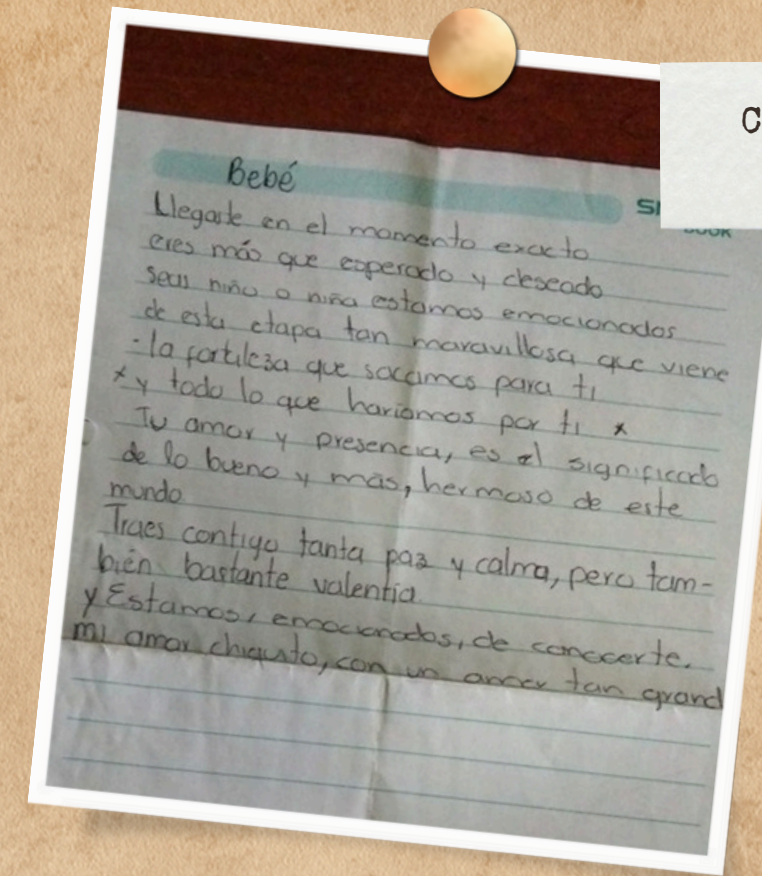 C
Bebé
Llegaste en el momento exacto
eres más que esperado y deseado
seas niño o niña estamos emocionados
de esta etapa tan maravillosa que viene
· la fortaleza que sacamos para ti
x y todo lo que hariamos por ti x
Tu amor y presencia, es el significado
de lo bueno y mas, hermoso de este
mundo.
Traes contigo tanta paz y calma, pero tam-
bién bastante valentia.
y Estamos, emocionados, de conocerte.
mi amor chiquito, con un amor tan grand